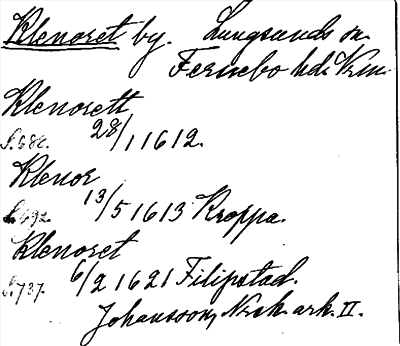 Klenoret by. Lungsunds sn.
Fernebo hd. Vrm.
Klenorett
S.682. 28/1 1612.
Klenor
S.692. 13/5 1613 Kroppa.
Klenoret
S.737. 6/2 1621 Filipstad.
Johansson, Nrsk. ark. II.